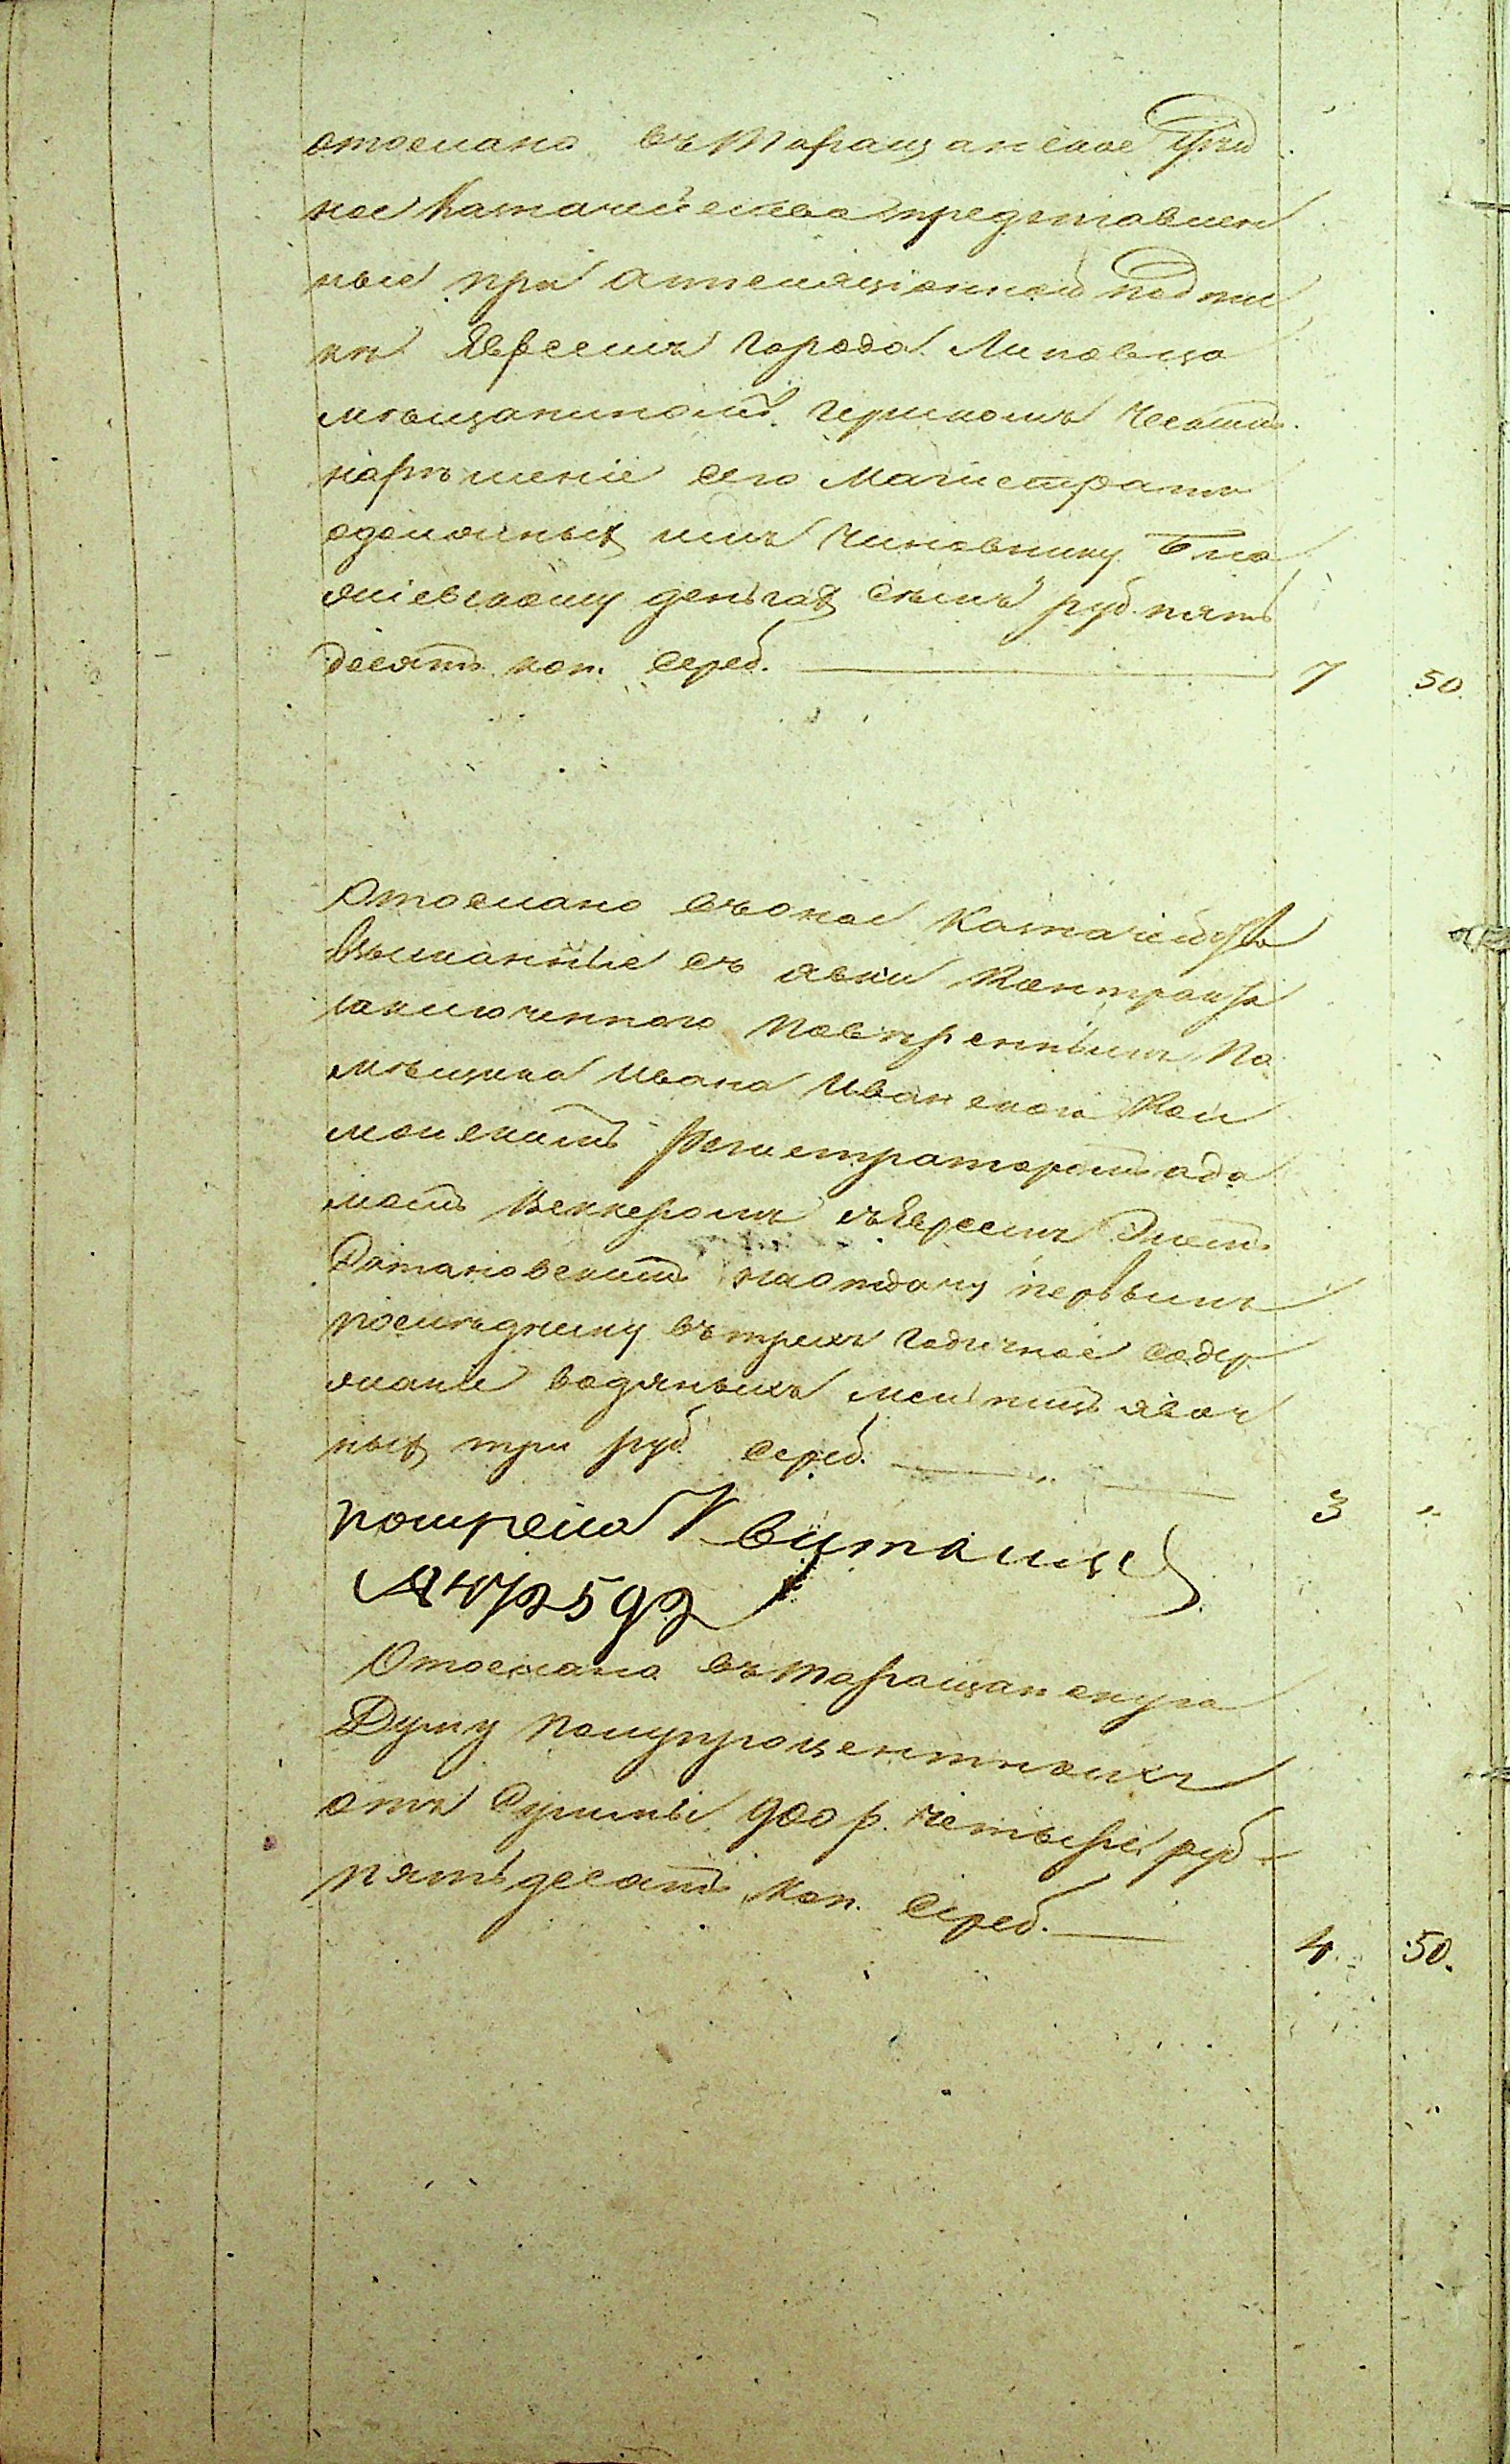 отослано въ Таращанское Уезд
ное Казначейство представлен
ные при аппеляціонной подпис
ке Евреемъ города Липовца
мѣщаниномъ Гершкомъ
нарѣшеніе сего Магистрата
одолжныхъ имъ Чиновнику
деньгахъ семь руб. пять
десятъ коп. сереб. 7 50
Отослано въоное Казначейство
взысканные съ явки Контракта
заключеннаго повѣреннымъ по
мѣщика Ивана Иванскаго Кол
лежскимъ Регистраторомъ Ада
момъ Веккеромъ съ Евреемъ
наотдачу первымъ
послѣднему въ трехъ годичное содер
жаніе водяныхъ мельницъ явоч
ныхъ три руб. сереб. 3 „
получена Квитанція
№ 472592
Отослано въ Таращанскую
Думу полупроцентныхъ
отъ суммы 900 р. четыре руб
пятьдесятъ коп. сереб. 4 50.